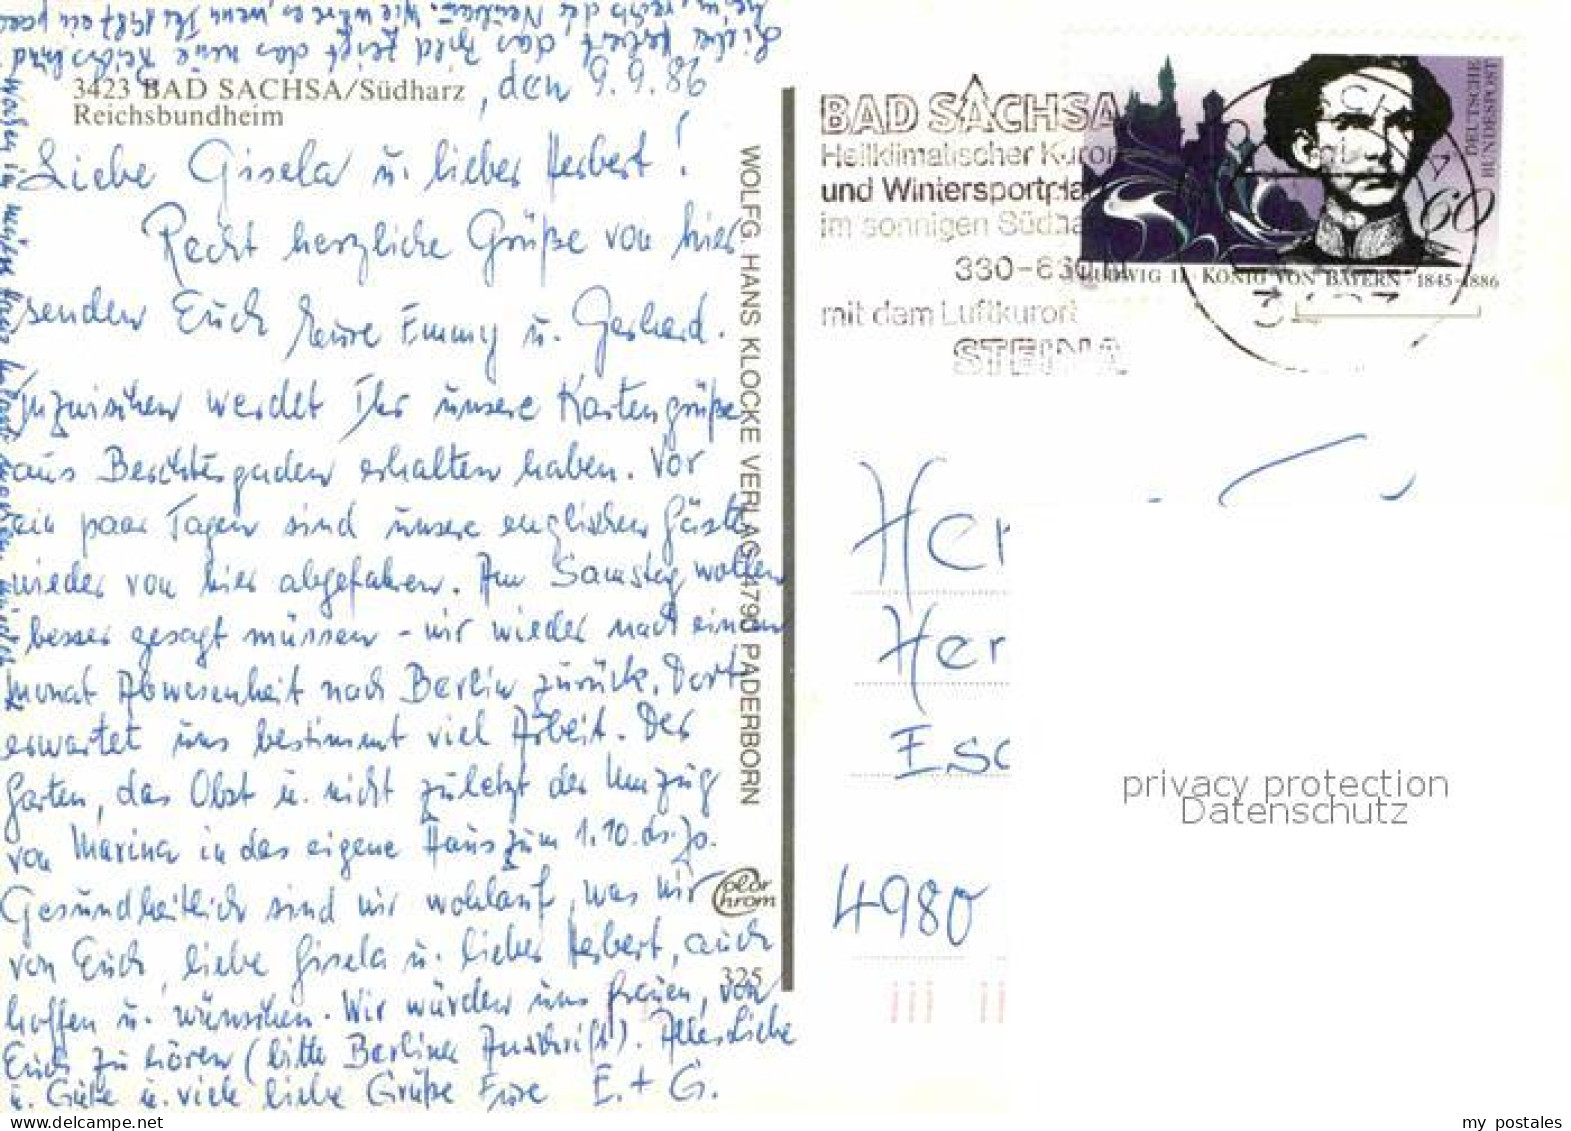 3423 BAD SACHSA/Südharz
Reichsbundheim
, den 9.9.86
Liebe Gisela u. lieber Herbert!
Recht herzliche Grüße von hier
senden Euch Eure Emmy u. Gerhard.
Inzwischen werdet Ihr unsere Kartengrüße
aus Berchtesgaden erhalten haben. Vor
ein paar Tagen sind unsere englischen Gäste
wieder von hier abgefahren. Am Samstag wollen
besser gesagt müssen - wir wieder nach einem
Monat Abwesenheit nach Berlin zurück. Dort
erwartet uns bestimmt viel Arbeit. Der
Garten, das Obst u. nicht zuletzt der Umzug
von Marina in das eigene Haus zum 1.10. ds. Js.
Gesundheitlich sind wir wohlauf, was wir
von Euch, liebe Gisela u. lieber Herbert, auch
hoffen u. wünschen. Wir würden uns freuen, von
Euch zu hören (bitte Berliner Anschrift). Alles Liebe
u. Gute u. viele liebe Grüße Eure E. + G.
Lieber Herbert, das Bild zeigt das neue Reichsbund
heim, rechts der Neubau. Wie wäre es, wenn Ihr 1987 ein paar
WOLFG. HANS KLOCKE VERLAG, 4790 PADERBORN
Color
Chrom
325
BAD SACHSA
Heilklimatischer Kurort
und Wintersportpla
im sonnigen Südha
330-650 m
mit dem Luftkurort
STEINA
DEUTSCHE
BUNDESPOST
60
LUDWIG II. KÖNIG VON BAYERN 1845-1886
Her
Her
Esc
4980
privacy protection
Datenschutz
my_postales